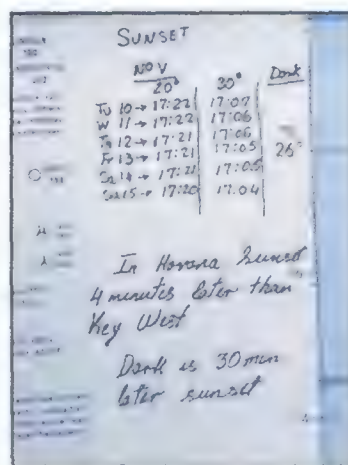 SUNSET
NOV
20° 30° Dark
Tu 10 → 17:22 17:07
W 11 → 17:22 17:06
Th 12 → 17:21 17:06
Fr 13 → 17:21 17:05 26°
Sa 14 → 17:21 17:05
Su 15 → 17:20 17:04
In Havana Sunset
4 minutes later than
Key West
Dark is 30 min
later sunset